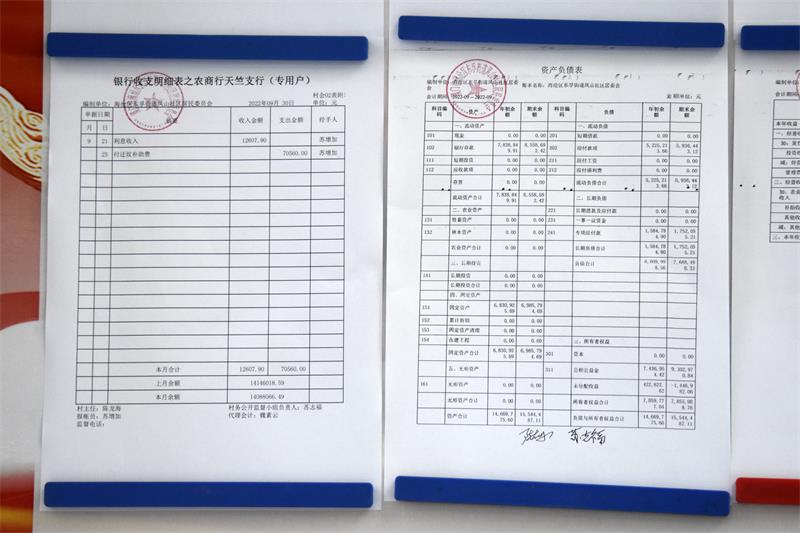 银行收支明细表之农商行天竺支行（专用户）
村会02表附1
编制单位：海沧区东孚街道凤山社区居民委员会 2022年09月30日 单位：元
单据日期 摘要 收入金额 支出金额 经手人
月 日
9 21 利息收入 12607.90 苏增加
25 付迁坟补助费 70560.00 苏增加
本月合计 12607.90 70560.00
上月余额 14146018.59
本月余额 14088066.49
村主任：陈龙海 村务公开监督小组负责人：苏志福
报帐员：苏增加 代理会计：魏素云
监督电话：
资产负债表
编制单位：海沧区东孚街道凤山社区居委会 账本名称：海沧区东孚街道凤山社区居委会
会计期间：2022-09--2022-09 金额单位：元
科目编码 资产 年初余额 期末余额 科目编码 负债 年初余额 期末余额
一、流动资产 一、流动负债
101 现金 0.00 0.00 201 短期借款 0.00 0.00
102 银行存款 7,838,849.91 8,558,692.42 202 应付款项 5,225,213.66 5,936,443.12
111 短期投资 0.00 0.00 211 应付工资 0.00 0.00
112 应收款项 0.00 0.00 212 应付福利费 0.00 0.00
存货 0.00 0.00 流动负债合计 5,225,213.66 5,936,443.12
流动资产合计 7,838,849.91 8,558,692.42 二、长期负债
二、农业资产 221 长期借款及应付款 0.00 0.00
131 牲畜资产 0.00 0.00 231 一事一议资金 0.00 0.00
132 林木资产 0.00 0.00 241 专项应付款 1,584,784.90 1,752,055.21
农业资产合计 0.00 0.00 长期负债合计 1,584,784.90 1,752,055.21
三、长期投资 负债合计 6,809,998.56 7,688,498.33
141 长期投资 0.00 0.00
长期投资合计 0.00 0.00
四、固定资产
151 固定资产 6,830,925.69 6,985,794.69
152 累计折旧 0.00 0.00
153 固定资产清理 0.00 0.00
154 在建工程 0.00 0.00 三、所有者权益
固定资产合计 6,830,925.69 6,985,794.69 301 资本 0.00 0.00
五、无形资产 311 公积公益金 7,436,954.42 9,302,970.84
161 无形资产 0.00 0.00 未分配收益 422,822.62 -1,446,982.06
无形资产合计 0.00 0.00 所有者权益合计 7,859,777.04 7,855,988.78
资产合计 14,669,775.60 15,544,487.11 负债与所有者权益合计 14,669,775.60 15,544,487.11
苏志福
本年收益
一、经营收
加：发
投资收
减：经
管理费
二、经营收
加：农业
收入
补助收
其他收
减：其他
三、本年收